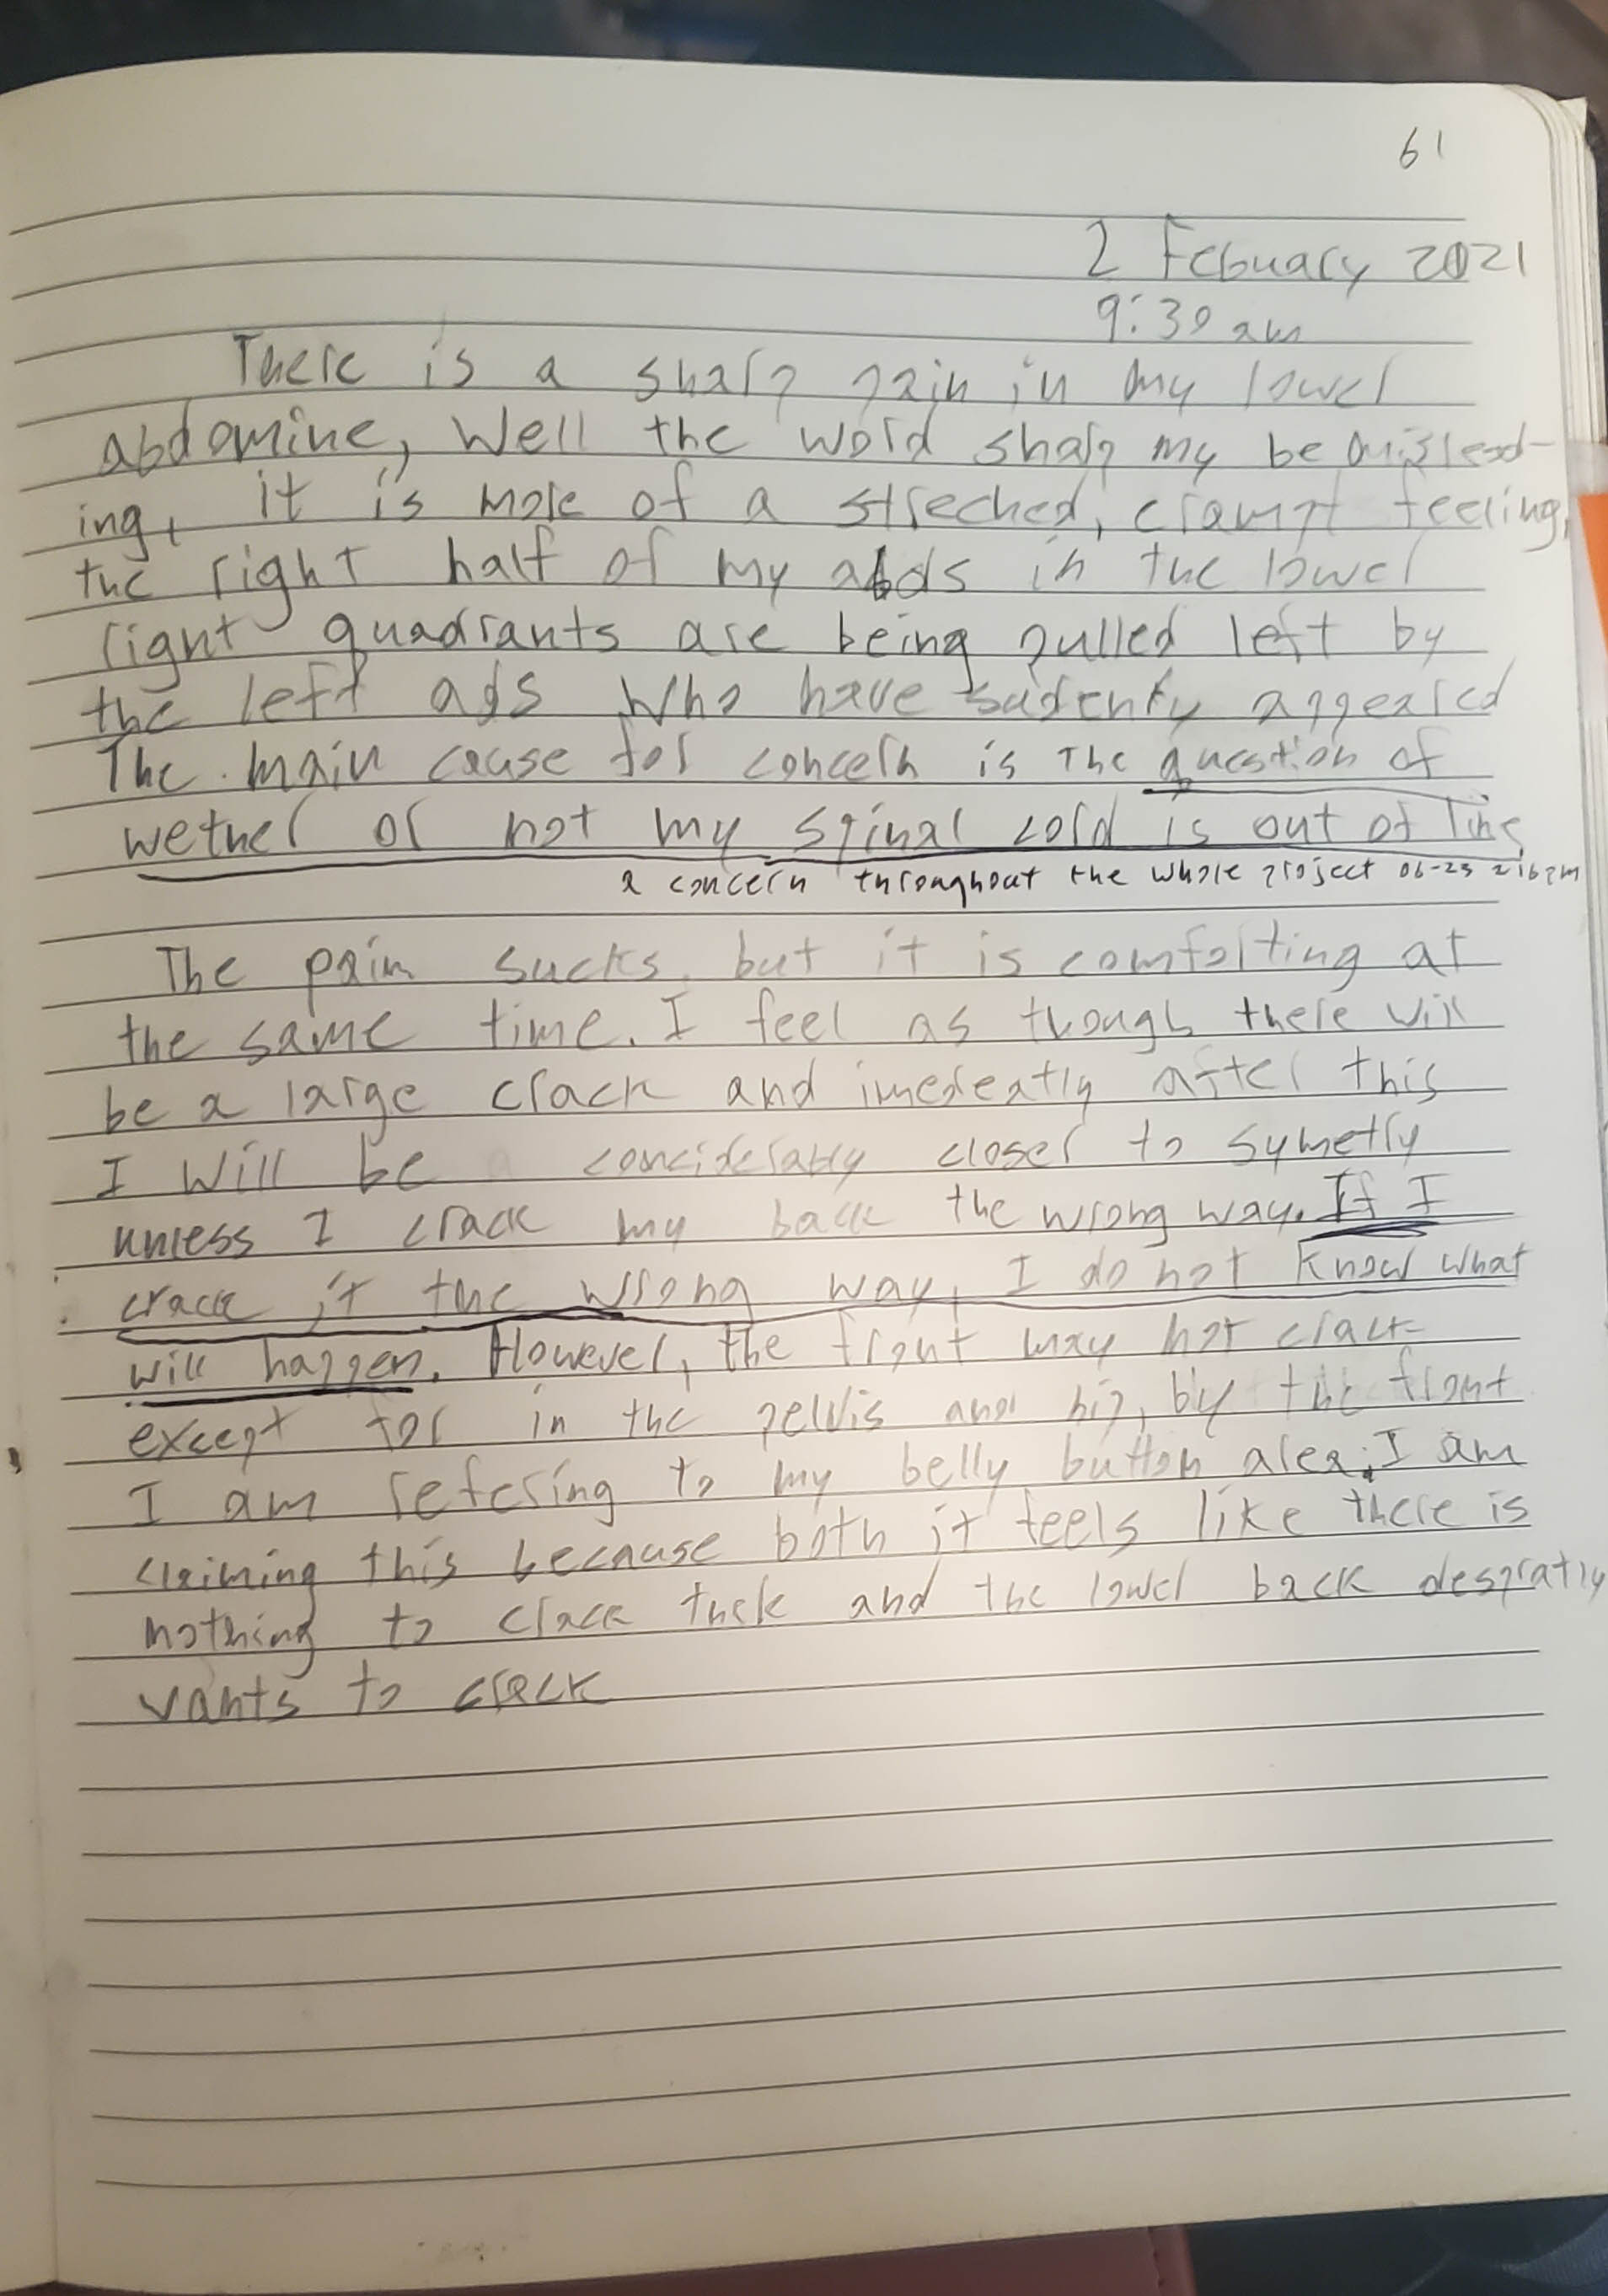 61
2 Febuary 2021
9:30 am
There is a sharp pain in my lower
abdomine, Well the word sharp my be mislead-
ing, it is more of a streched, crampt feeling,
the right half of my abds in the lower
right quadrants are being pulled left by
the left abs who have sudenty appeared
The main cause for concern is the question of
wether or not my spinal cord is out of line
a concern throughout the whole project 06-23 2:16pm
The pain sucks, but it is comforting at
the same time. I feel as though there will
be a large crack and imedeatly after this
I will be conciderably closer to symetry
unless I crack my back the wrong way. If I
crack it the wrong way, I do not know what
will happen. However, the front may not crack
except for in the pelvis and hip, by the front
I am refering to my belly button area. I am
claiming this because both it feels like there is
nothing to crack there and the lower back despratly
wants to crack